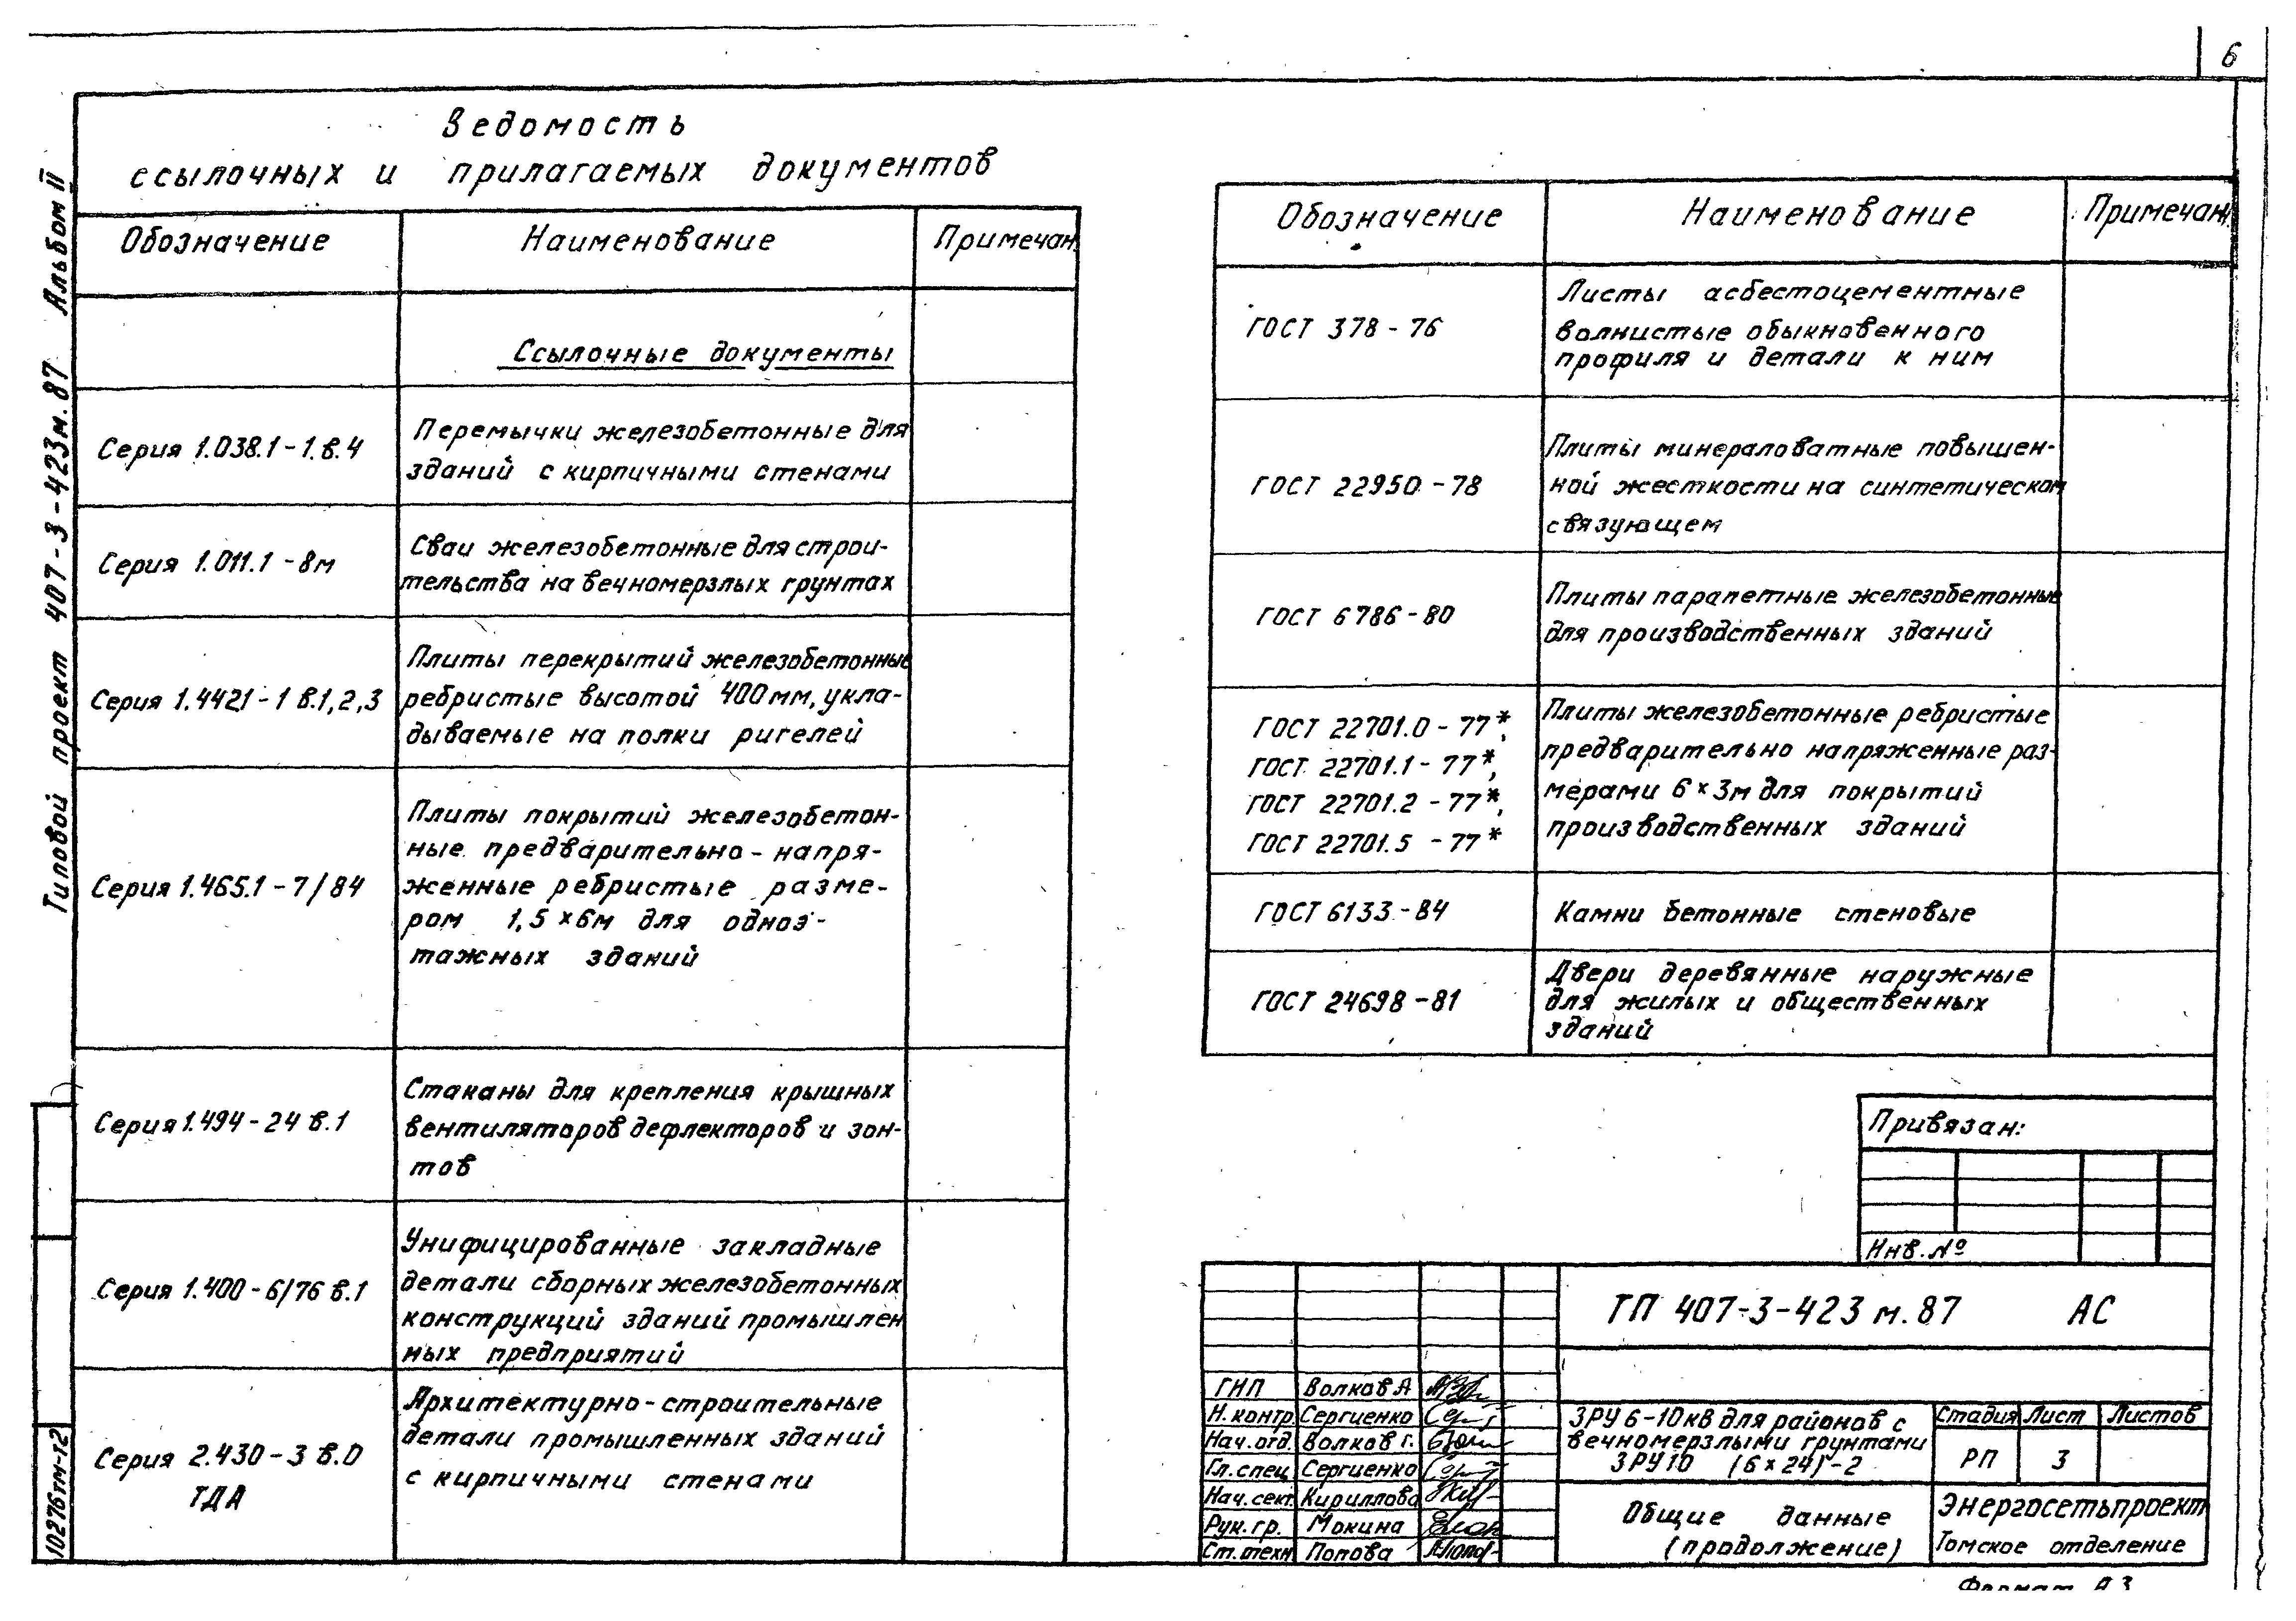 6
Ведомость
ссылочных и прилагаемых документов
Обозначение Наименование Примечан.
Ссылочные документы
Серия 1.038.1-1.в.4
Перемычки железобетонные для
зданий с кирпичными стенами
Серия 1.011.1-8м
Сваи железобетонные для строи-
тельства на вечномерзлых грунтах
Серия 1.442.1-1 в.1,2,3
Плиты перекрытий железобетонные
ребристые высотой 400мм, укла-
дываемые на полки ригелей
Серия 1.465.1-7/84
Плиты покрытий железобетон-
ные предварительно-напря-
женные ребристые разме-
ром 1,5×6м для одноэ-
тажных зданий
Серия 1.494-24 в.1
Стаканы для крепления крышных
вентиляторов дефлекторов и зон-
тов
Серия 1.400-6/76 в.1
Унифицированные закладные
детали сборных железобетонных
конструкций зданий промышлен
ных предприятий
Серия 2.430-3 в.0
ТДА
Архитектурно-строительные
детали промышленных зданий
с кирпичными стенами
Обозначение Наименование Примечан.
ГОСТ 378-76
Листы асбестоцементные
волнистые обыкновенного
профиля и детали к ним
ГОСТ 22950-78
Плиты минераловатные повышен-
ной жесткости на синтетическом
связующем
ГОСТ 6786-80
Плиты парапетные железобетонные
для производственных зданий
ГОСТ 22701.0-77*,
ГОСТ 22701.1-77*,
ГОСТ 22701.2-77*,
ГОСТ 22701.5-77*
Плиты железобетонные ребристые
предварительно напряженные раз-
мерами 6×3м для покрытий
производственных зданий
ГОСТ 6133-84
Камни бетонные стеновые
ГОСТ 24698-81
Двери деревянные наружные
для жилых и общественных
зданий
Привязан:
Инв. №
ТП 407-3-423 м.87 АС
ГИП Волков А
Н.контр. Сергиенко
Нач.отд. Волков г.
Гл.спец Сергиенко
Нач.сект. Кириллова
Рук.гр. Мокина
Ст.техн Попова
ЗРУ 6-10кВ для районов с
вечномерзлыми грунтами
ЗРУ10 (6×24)-2
Стадия Лист Листов
РП 3
Общие данные
(продолжение)
Энергосетьпроект
Томское отделение
Формат А3
Типовой проект 407-3-423м.87 Альбом II
10276тм-т2